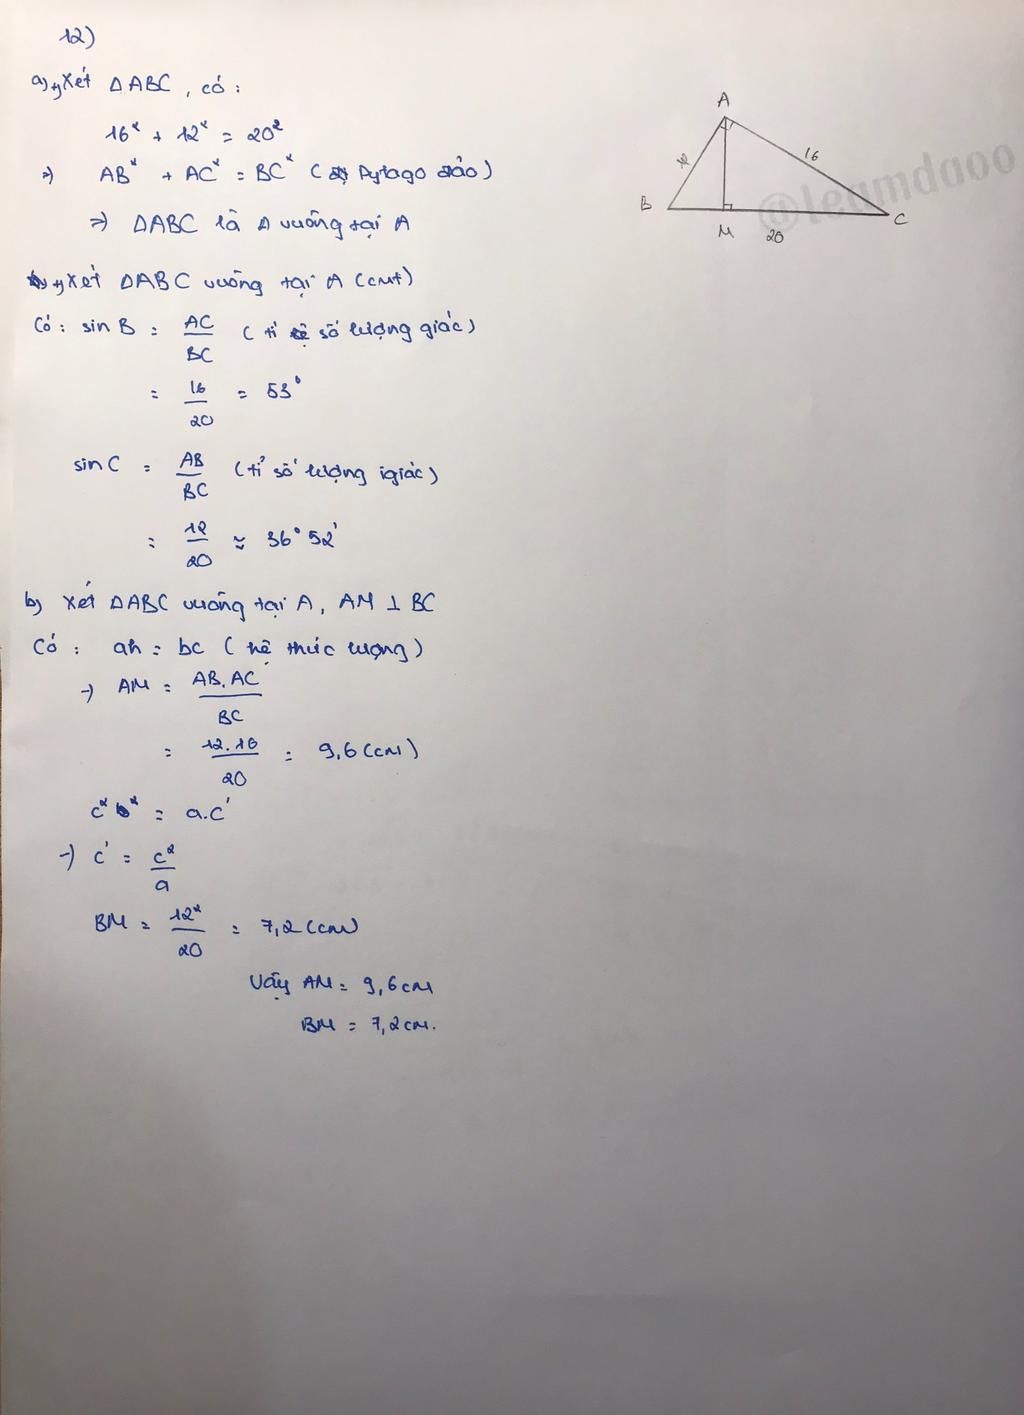 12)
a) +) Xét ΔABC, có:
16² + 12² = 20²
=) AB² + AC² = BC² ( Pytago đảo)
=) ΔABC là Δ vuông tại A
+) Xét ΔABC vuông tại A (cmt)
Có: sin B = AC/BC (tỉ số lượng giác)
= 16/20 = 53°
sin C = AB/BC (tỉ số lượng giác)
= 12/20 ≈ 36°52'
b) Xét ΔABC vuông tại A, AM ⊥ BC
Có: ah = bc (hệ thức lượng)
-) AM = AB.AC/BC
= 12.16/20 = 9,6 (cm)
c² = a.c'
-) c' = c²/a
BM = 12²/20 = 7,2 (cm)
Vậy AM = 9,6 cm
BM = 7,2 cm.
A
16
B
M
20
C
@leamdaoo